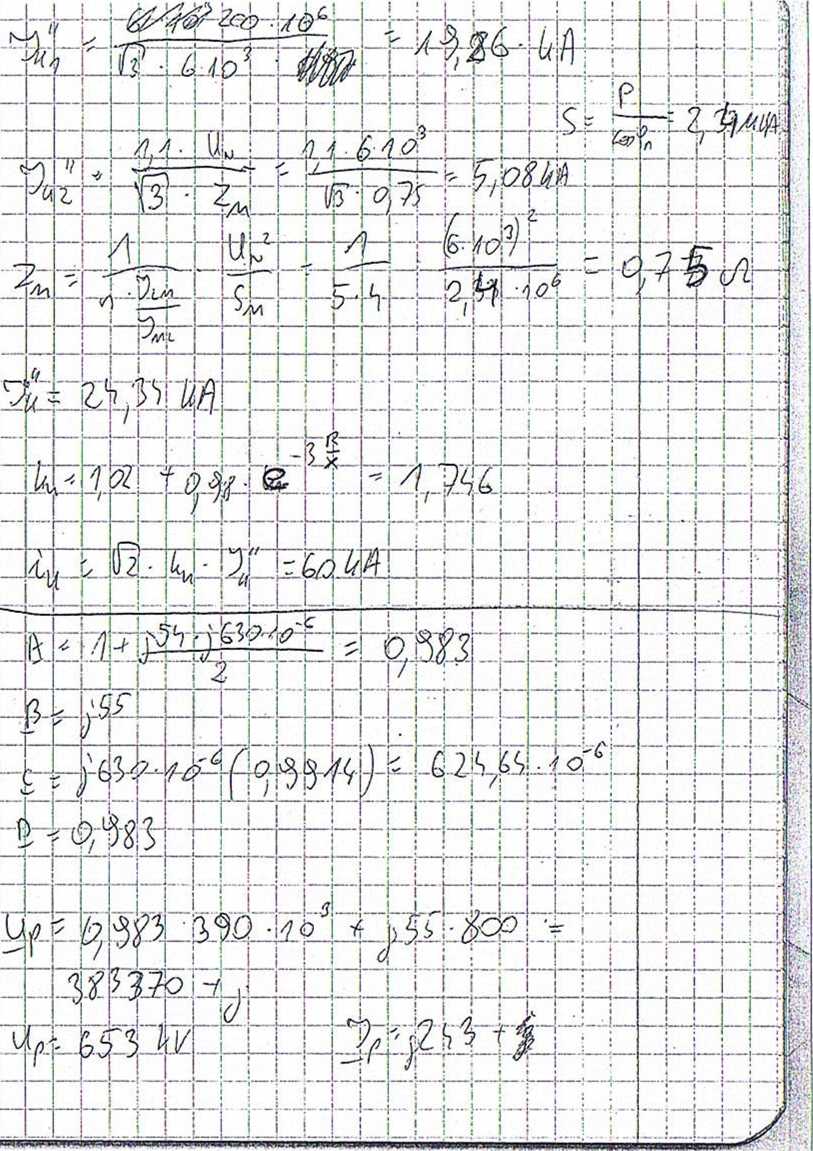 I''k1 = 200·10⁶ / √3 · 6·10³ = 19,26 · kA
S = P / cosφn = 2,41 MVA
I''k2 = 1,1 · UN / √3 · ZM = 1,1 · 6·10³ / √3 · 0,75 = 5,08 kA
ZM = 1 / n · ILM/IM2 · UN² / SM = 1 / 5·4 · (6·10³)² / 2,41 · 10⁶ = 0,75 Ω
I''k = 24,34 kA
ku = 1,02 + 0,98 · e^(-3 R/X) = 1,746
iu = √2 · ku · I''k = 60 kA
A = 1 + j54 · j630·10⁻⁶ / 2 = 0,983
B = j55
C = j630·10⁻⁶ (0,9914) = 624,64·10⁻⁶
D = 0,983
Up = 0,983 · 390 · 10³ + j55 · 800 =
383370 + j
Up = 653 kV Ip = j243 +